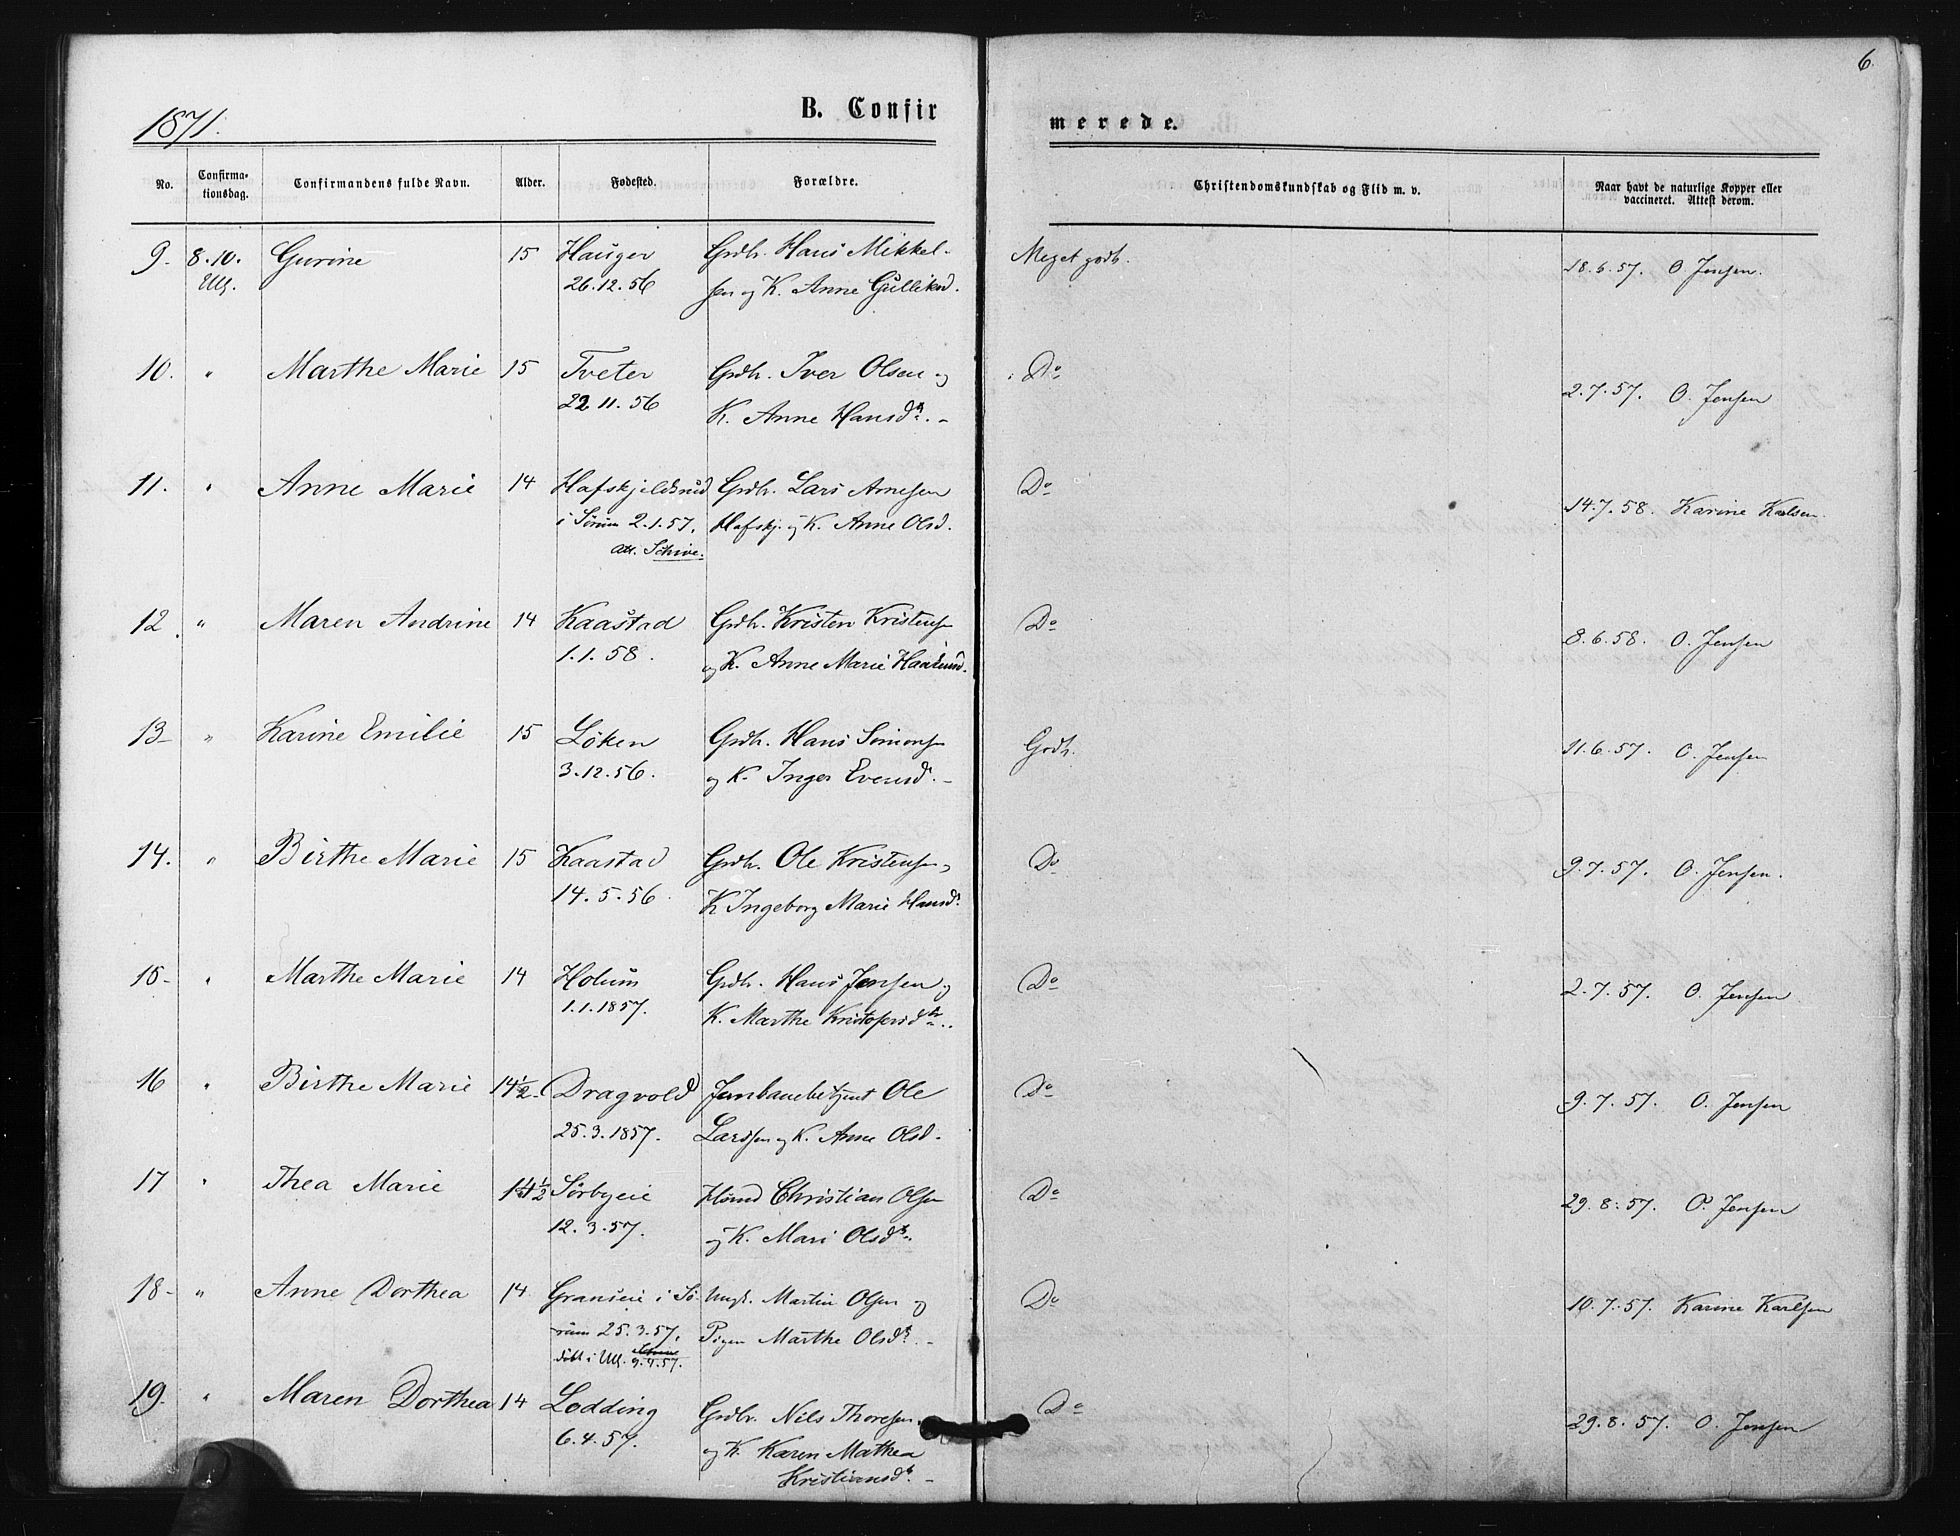 6.
1871.
B. Confir
merede.
No. Confirma-tionsdag. Confirmandens fulde Navn. Alder. Fødested. Forældre. Christendomskundskab og Flid m. v. Naar havt de naturlige Kopper eller vaccineret. Attest derom.
9. 8.10. Gurine 15 Hauger Grdbr. Hans Mikkel- Meget godt. 18.6.57. O Jensen.
Ull. 26.12.56 sen og K. Anne Gulliksd.
10. " Marthe Marie 15 Tveter Grdbr. Iver Olsen og Do 2.7.57. O. Jensen
22.11.56 K. Anne Hansdr. -
11. " Anne Marie 14 Hafskjeldsrud Grdbr. Lars Arnesen Do 14.7.58. Karine Karlsen.
i Sørum 2.1.57. Hafskj. og K. Anne Olsd.
att. Schive.
12. " Maren Andrine 14 Kaastad Grdbr. Kristen Kristensen Do 8.6.58. O. Jensen
1.1.58. og K. Anne Marie Haagensd.
13 " Karine Emilie 15 Löken Grdbr. Hans Simonsen Godt. 11.6.57. O. Jensen
3.12.56. og K. Inger Evensd. -
14. " Birthe Marie 15 Kaastad Grdbr. Ole Kristensen, Do 9.7.57. O. Jensen.
14.5.56. K Ingeborg Marie Hansdr
15 " Marthe Marie 14 Holum Grdbr. Hans Jensen og Do 2.7.57. O. Jensen
1.1.1857. K. Marthe Kristofersdtr.
16 " Birthe Marie 14½ Dragvold Jernbanebetjent Ole Do 9.7.57. O. Jensen
25.3.1857. Larssen og K. Anne Olsd.
17 " Thea Marie 14½ Sørbyeie Husmd Christian Olsen Do 29.8.57. O. Jensen
12.3.57. og K. Mari Olsdr.
18 " Anne Dorthea 14 Granseie i Sø- Ungk. Martin Olsen og Do 10.7.57. Karine Karlsen
rum 25.3.57. Pigen Marthe Olsdr. -
döbt i Ull. 9.4.57.
19. " Maren Dorthea 14 Lodding Grdbr. Nils Thoresen Do 29.8.57. O. Jensen
6.4.57. og K. Karen Mathea
Kristiansdr. -